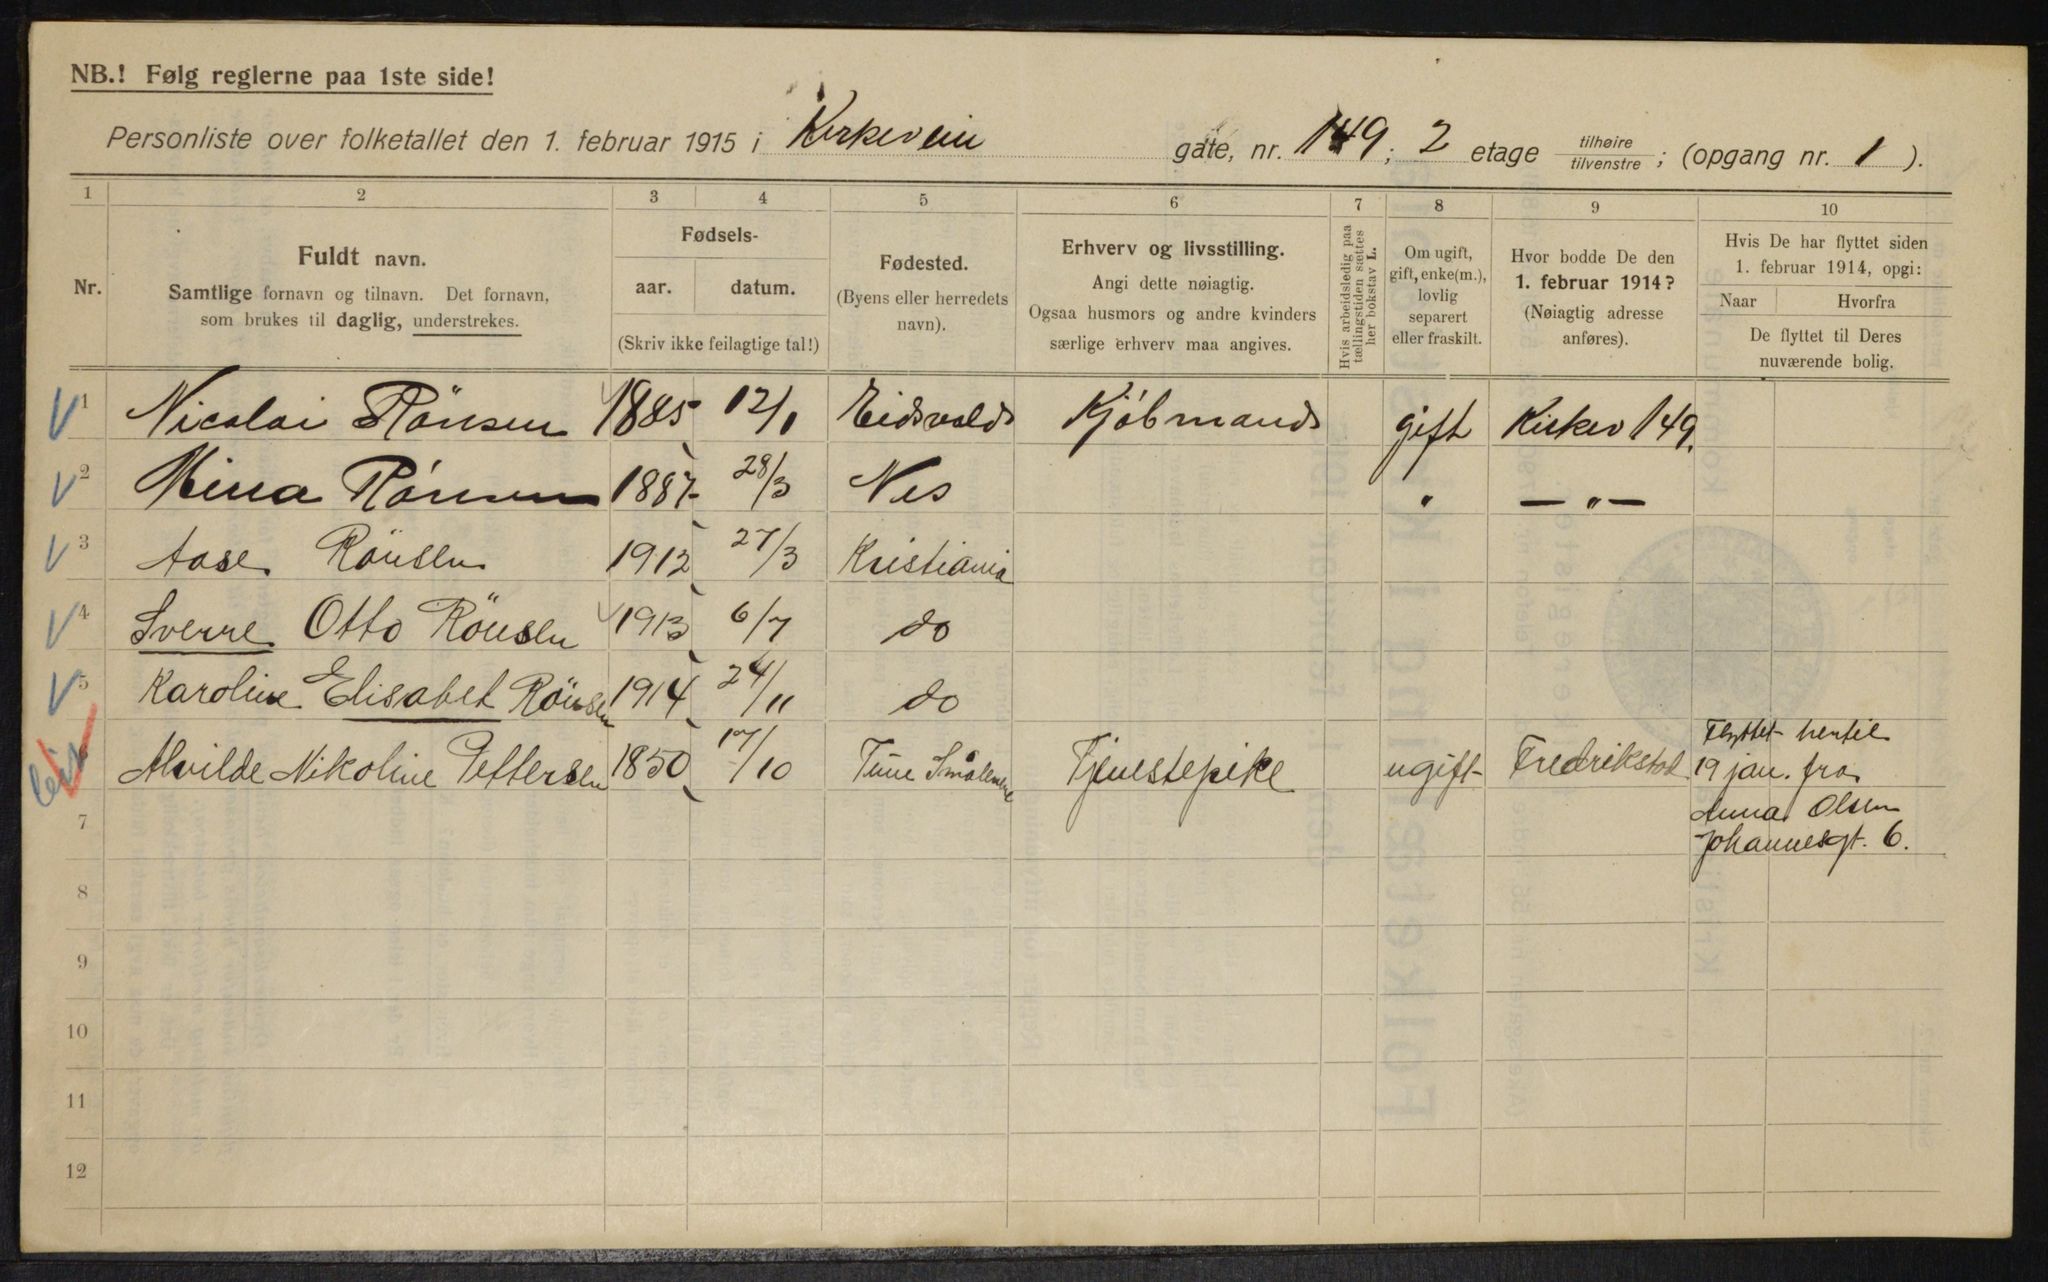 NB.! Følg reglerne paa 1ste side!
Personliste over folketallet den 1. februar 1915 i Kirkeveien gate, nr. 149; 2 etage tilhøire tilvenstre; (opgang nr. 1).
1 2 3 4 5 6 7 8 9 10
Nr.
Fuldt navn.
Samtlige fornavn og tilnavn. Det fornavn,
som brukes til daglig, understrekes.
Fødsels-
aar. datum.
(Skriv ikke feilagtige tal!)
Fødested.
(Byens eller herredets
navn).
Erhverv og livsstilling.
Angi dette nøiagtig.
Ogsaa husmors og andre kvinders
særlige erhverv maa angives.
Hvis arbeidsledig paa
tællingstiden sættes
her bokstav L.
Om ugift,
gift, enke(m.),
lovlig
separert
eller fraskilt.
Hvor bodde De den
1. februar 1914?
(Nøiagtig adresse
anføres).
Hvis De har flyttet siden
1. februar 1914, opgi:
Naar Hvorfra
De flyttet til Deres
nuværende bolig.
1 Nicolai Rönsen 1885 12/1 Eidsvold Kjöbmand gift Kirkev 149.
2 Mina Rónsen 1887 28/3 Nes " — " —
3 Aase Rönsen 1912 27/3 Kristiania
4 Sverre Otto Rönsen 1913 6/7 do
5 Karoline Elisabet Rönsen 1914 24/11 do
6 Alvilde Nikoline Pettersen 1850 17/10 Tune Smålenene Tjenestepike ugift Fredrikstad Flyttet hertil
19 jan. fra
7 Anna Olsen
Johannesgt. 6.
8
9
10
11
12